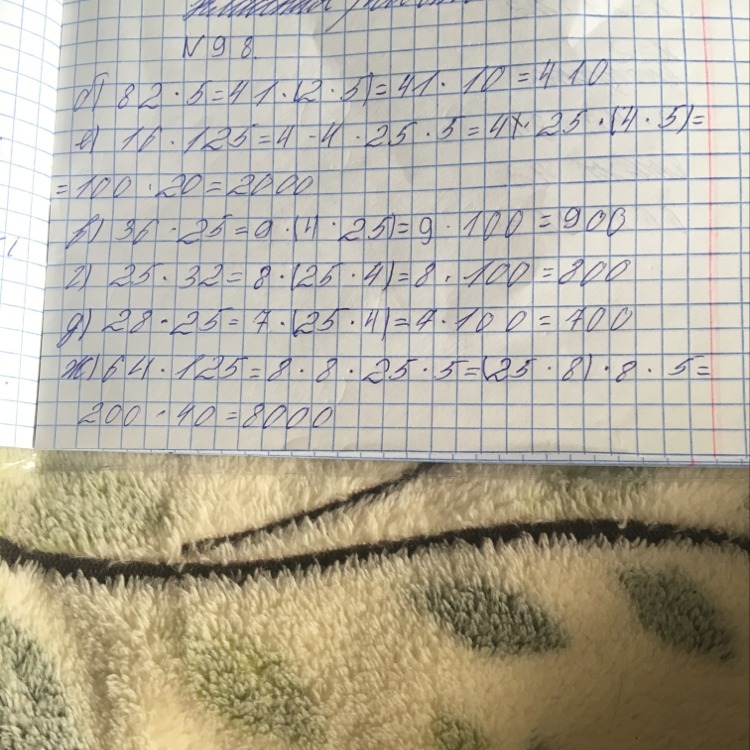 № 98.
б) 82 · 5 = 41 · (2 · 5) = 41 · 10 = 410
е) 16 · 125 = 4 · 4 · 25 · 5 = 4 · 25 · (4 · 5) =
= 100 · 20 = 2000
в) 36 · 25 = 9 · (4 · 25) = 9 · 100 = 900
г) 25 · 32 = 8 · (25 · 4) = 8 · 100 = 800
д) 28 · 25 = 7 · (25 · 4) = 7 · 100 = 700
ж) 64 · 125 = 8 · 8 · 25 · 5 = (25 · 8) · 8 · 5 =
200 · 40 = 8000